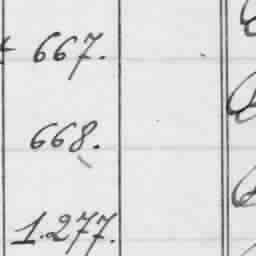 667.
668.
1.277.